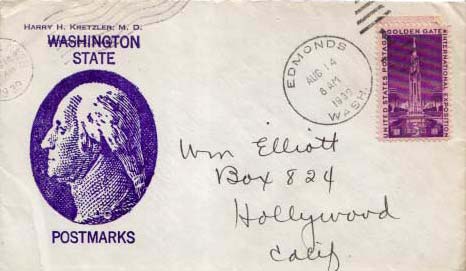 HARRY H. KRETZLER, M. D.
WASHINGTON
STATE
POSTMARKS
EDMONDS
AUG 14
8 AM
1939
WASH.
UNITED STATES POSTAGE
GOLDEN GATE
INTERNATIONAL EXPOSITION
3¢
Wm Elliott
Box 824
Hollywood
Calif.